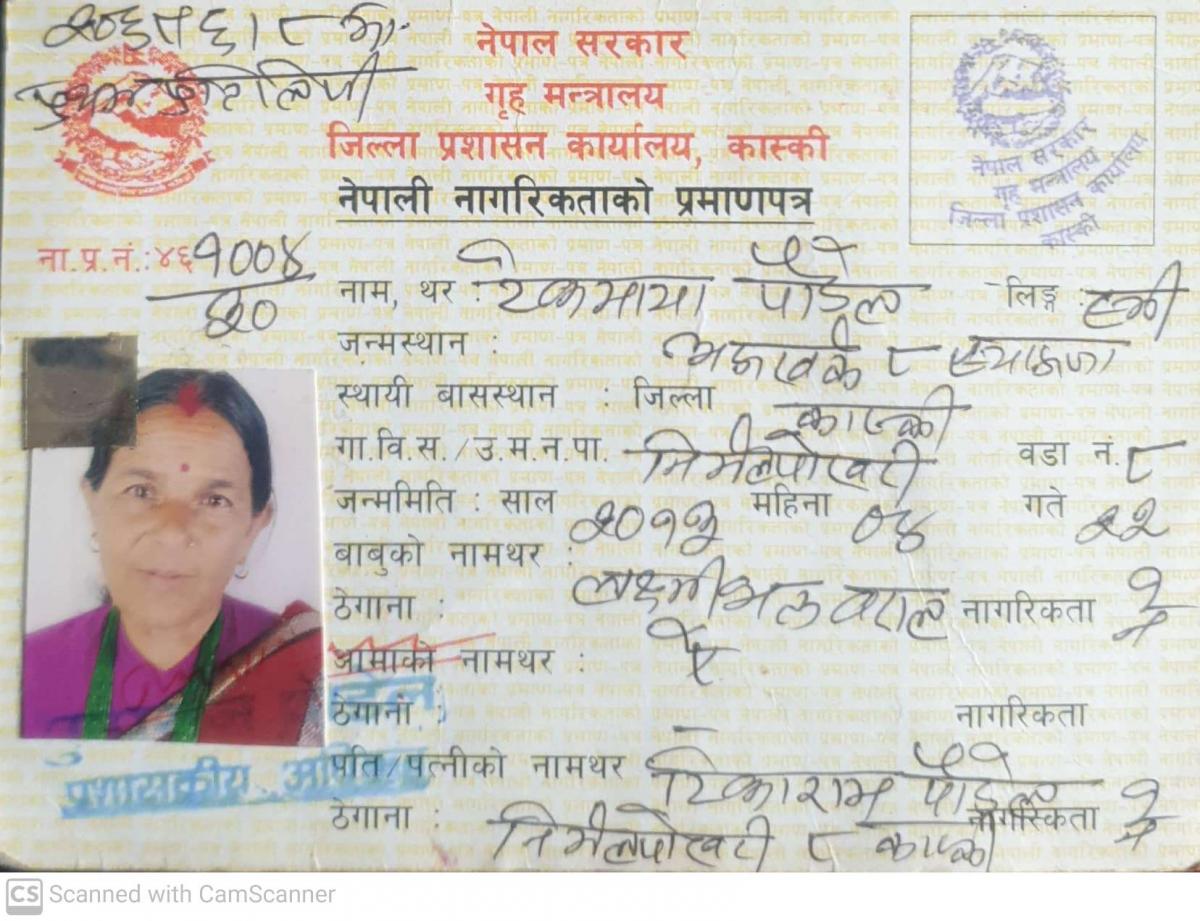 नेपाल सरकार
गृह मन्त्रालय
जिल्ला प्रशासन कार्यालय, कास्की
नेपाली नागरिकताको प्रमाणपत्र
नेपाल सरकार
गृह मन्त्रालय
जिल्ला प्रशासन कार्यालय
कास्की
ना.प्र.नं.: ४६१००४/२०
नाम, थर : टेकमाया पौडेल लिङ्ग स्त्री
जन्मस्थान : ८ स्याङजा
स्थायी बासस्थान : जिल्ला कास्की
गा.वि.स./उ.म.न.पा. निर्मलपोखरी वडा नं. ८
जन्ममिति : साल महिना ०४ गते २२
बाबुको नामथर :
ठेगाना : नागरिकता
आमाको नामथर :
ठेगाना : नागरिकता
पति/पत्नीको नामथर टिकाराम पौडेल
ठेगाना : निर्मलपोखरी ८ कास्की नागरिकता
प्रशासकीय
CS Scanned with CamScanner